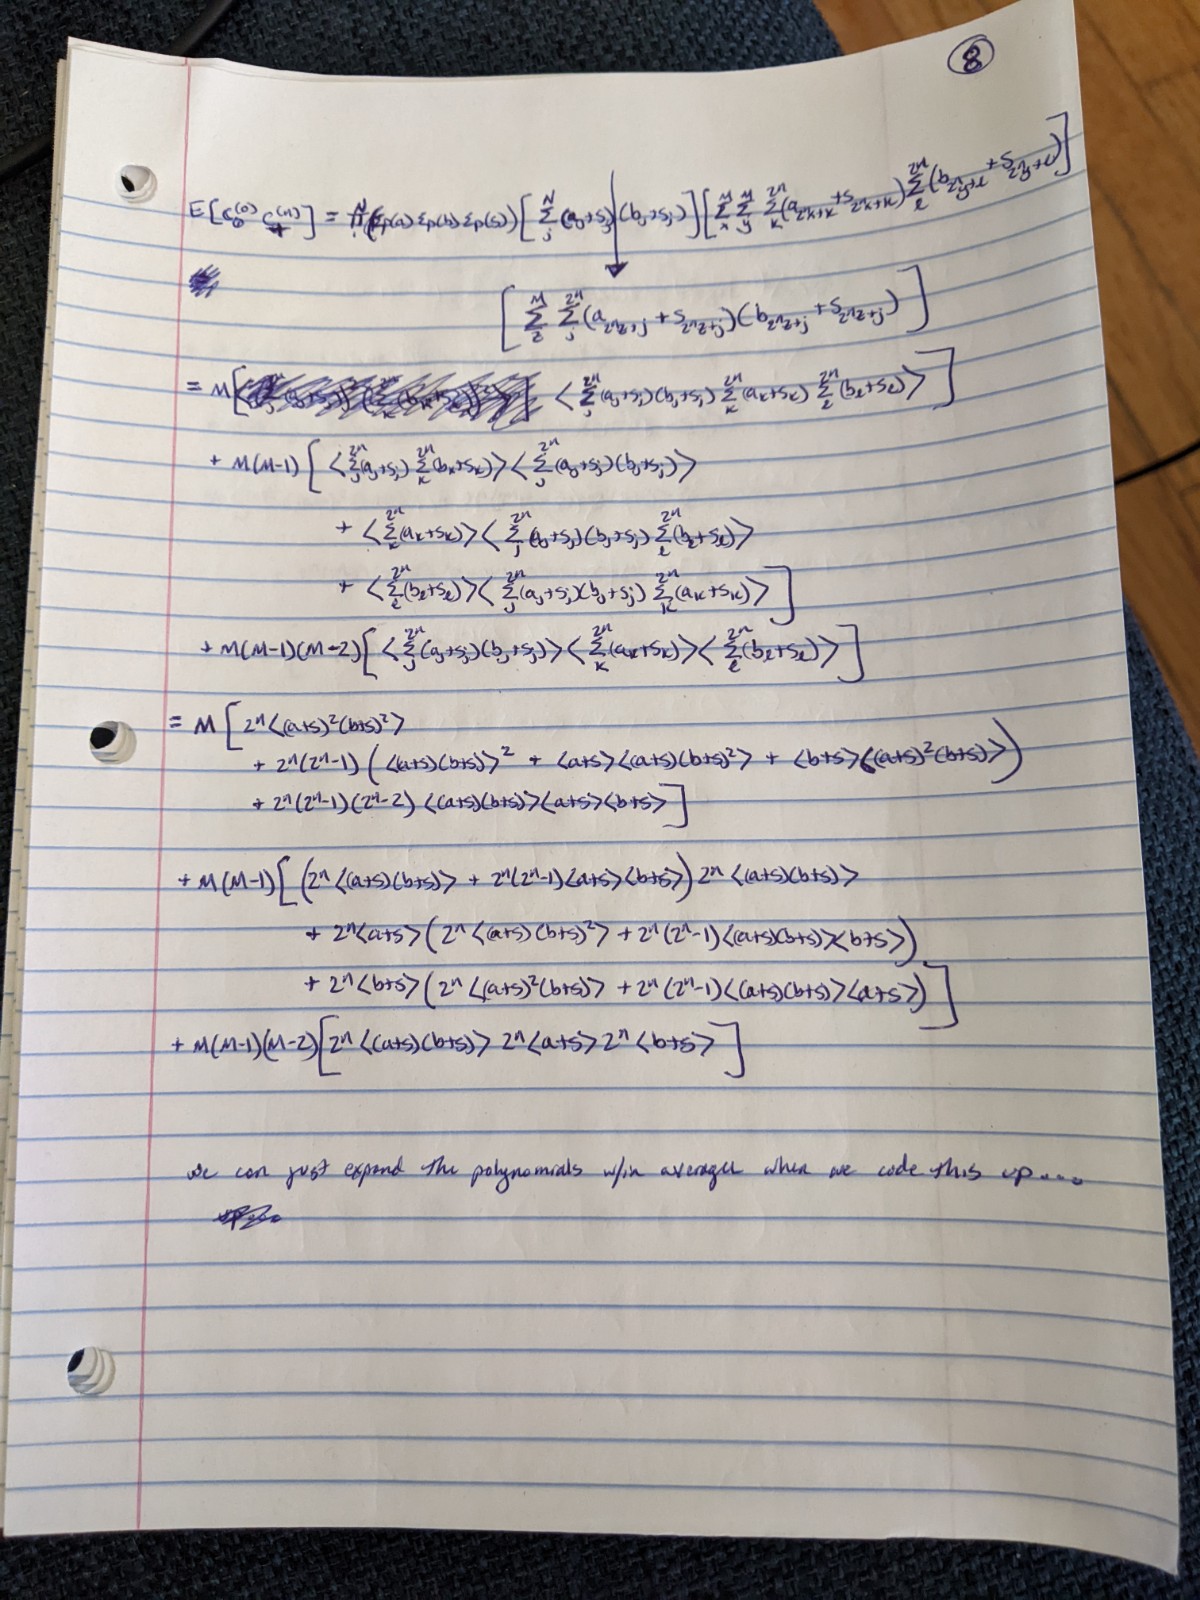 8
E[C_0^{(0)} C_+^{(n)}] = Π_i^N (Σp(a) Σp(b) Σp(s)) [Σ_j^N (a_j+s_j)(b_j+s_j)][Σ_x^M Σ_y^M Σ_k^{2^n} (a_{2^n x+k} + s_{2^n x+k}) Σ_l^{2^n} (b_{2^n y+l} + s_{2^n y+l})]
[Σ_z^M Σ_j^{2^n} (a_{2^n z+j} + s_{2^n z+j})(b_{2^n z+j} + s_{2^n z+j})]
= M[ <Σ_j^{2^n} (a_j+s_j)(b_j+s_j) Σ_k^{2^n} (a_k+s_k) Σ_l^{2^n} (b_l+s_l)>]
+ M(M-1)[<Σ_j^{2^n} (a_j+s_j) Σ_k^{2^n} (b_k+s_k)><Σ_j^{2^n} (a_j+s_j)(b_j+s_j)>
+ <Σ_k^{2^n} (a_k+s_k)><Σ_j^{2^n} (a_j+s_j)(b_j+s_j) Σ_l^{2^n} (b_l+s_l)>
+ <Σ_l^{2^n} (b_l+s_l)><Σ_j^{2^n} (a_j+s_j)(b_j+s_j) Σ_k^{2^n} (a_k+s_k)>]
+ M(M-1)(M-2)[<Σ_j^{2^n} (a_j+s_j)(b_j+s_j)><Σ_k^{2^n} (a_k+s_k)><Σ_l^{2^n} (b_l+s_l)>]
= M[2^n <(a+s)^2(b+s)^2>
+ 2^n(2^n-1)(<(a+s)(b+s)>^2 + <a+s><(a+s)(b+s)^2> + <b+s><(a+s)^2(b+s)>)
+ 2^n(2^n-1)(2^n-2) <(a+s)(b+s)><a+s><b+s>]
+ M(M-1)[(2^n <(a+s)(b+s)> + 2^n(2^n-1)<a+s><b+s>) 2^n <(a+s)(b+s)>
+ 2^n<a+s>(2^n <(a+s)(b+s)^2> + 2^n(2^n-1)<(a+s)(b+s)><b+s>)
+ 2^n<b+s>(2^n <(a+s)^2(b+s)> + 2^n(2^n-1)<(a+s)(b+s)><a+s>)]
+ M(M-1)(M-2)[2^n <(a+s)(b+s)> 2^n <a+s> 2^n <b+s>]
we can just expand the polynomials w/in averages when we code this up....